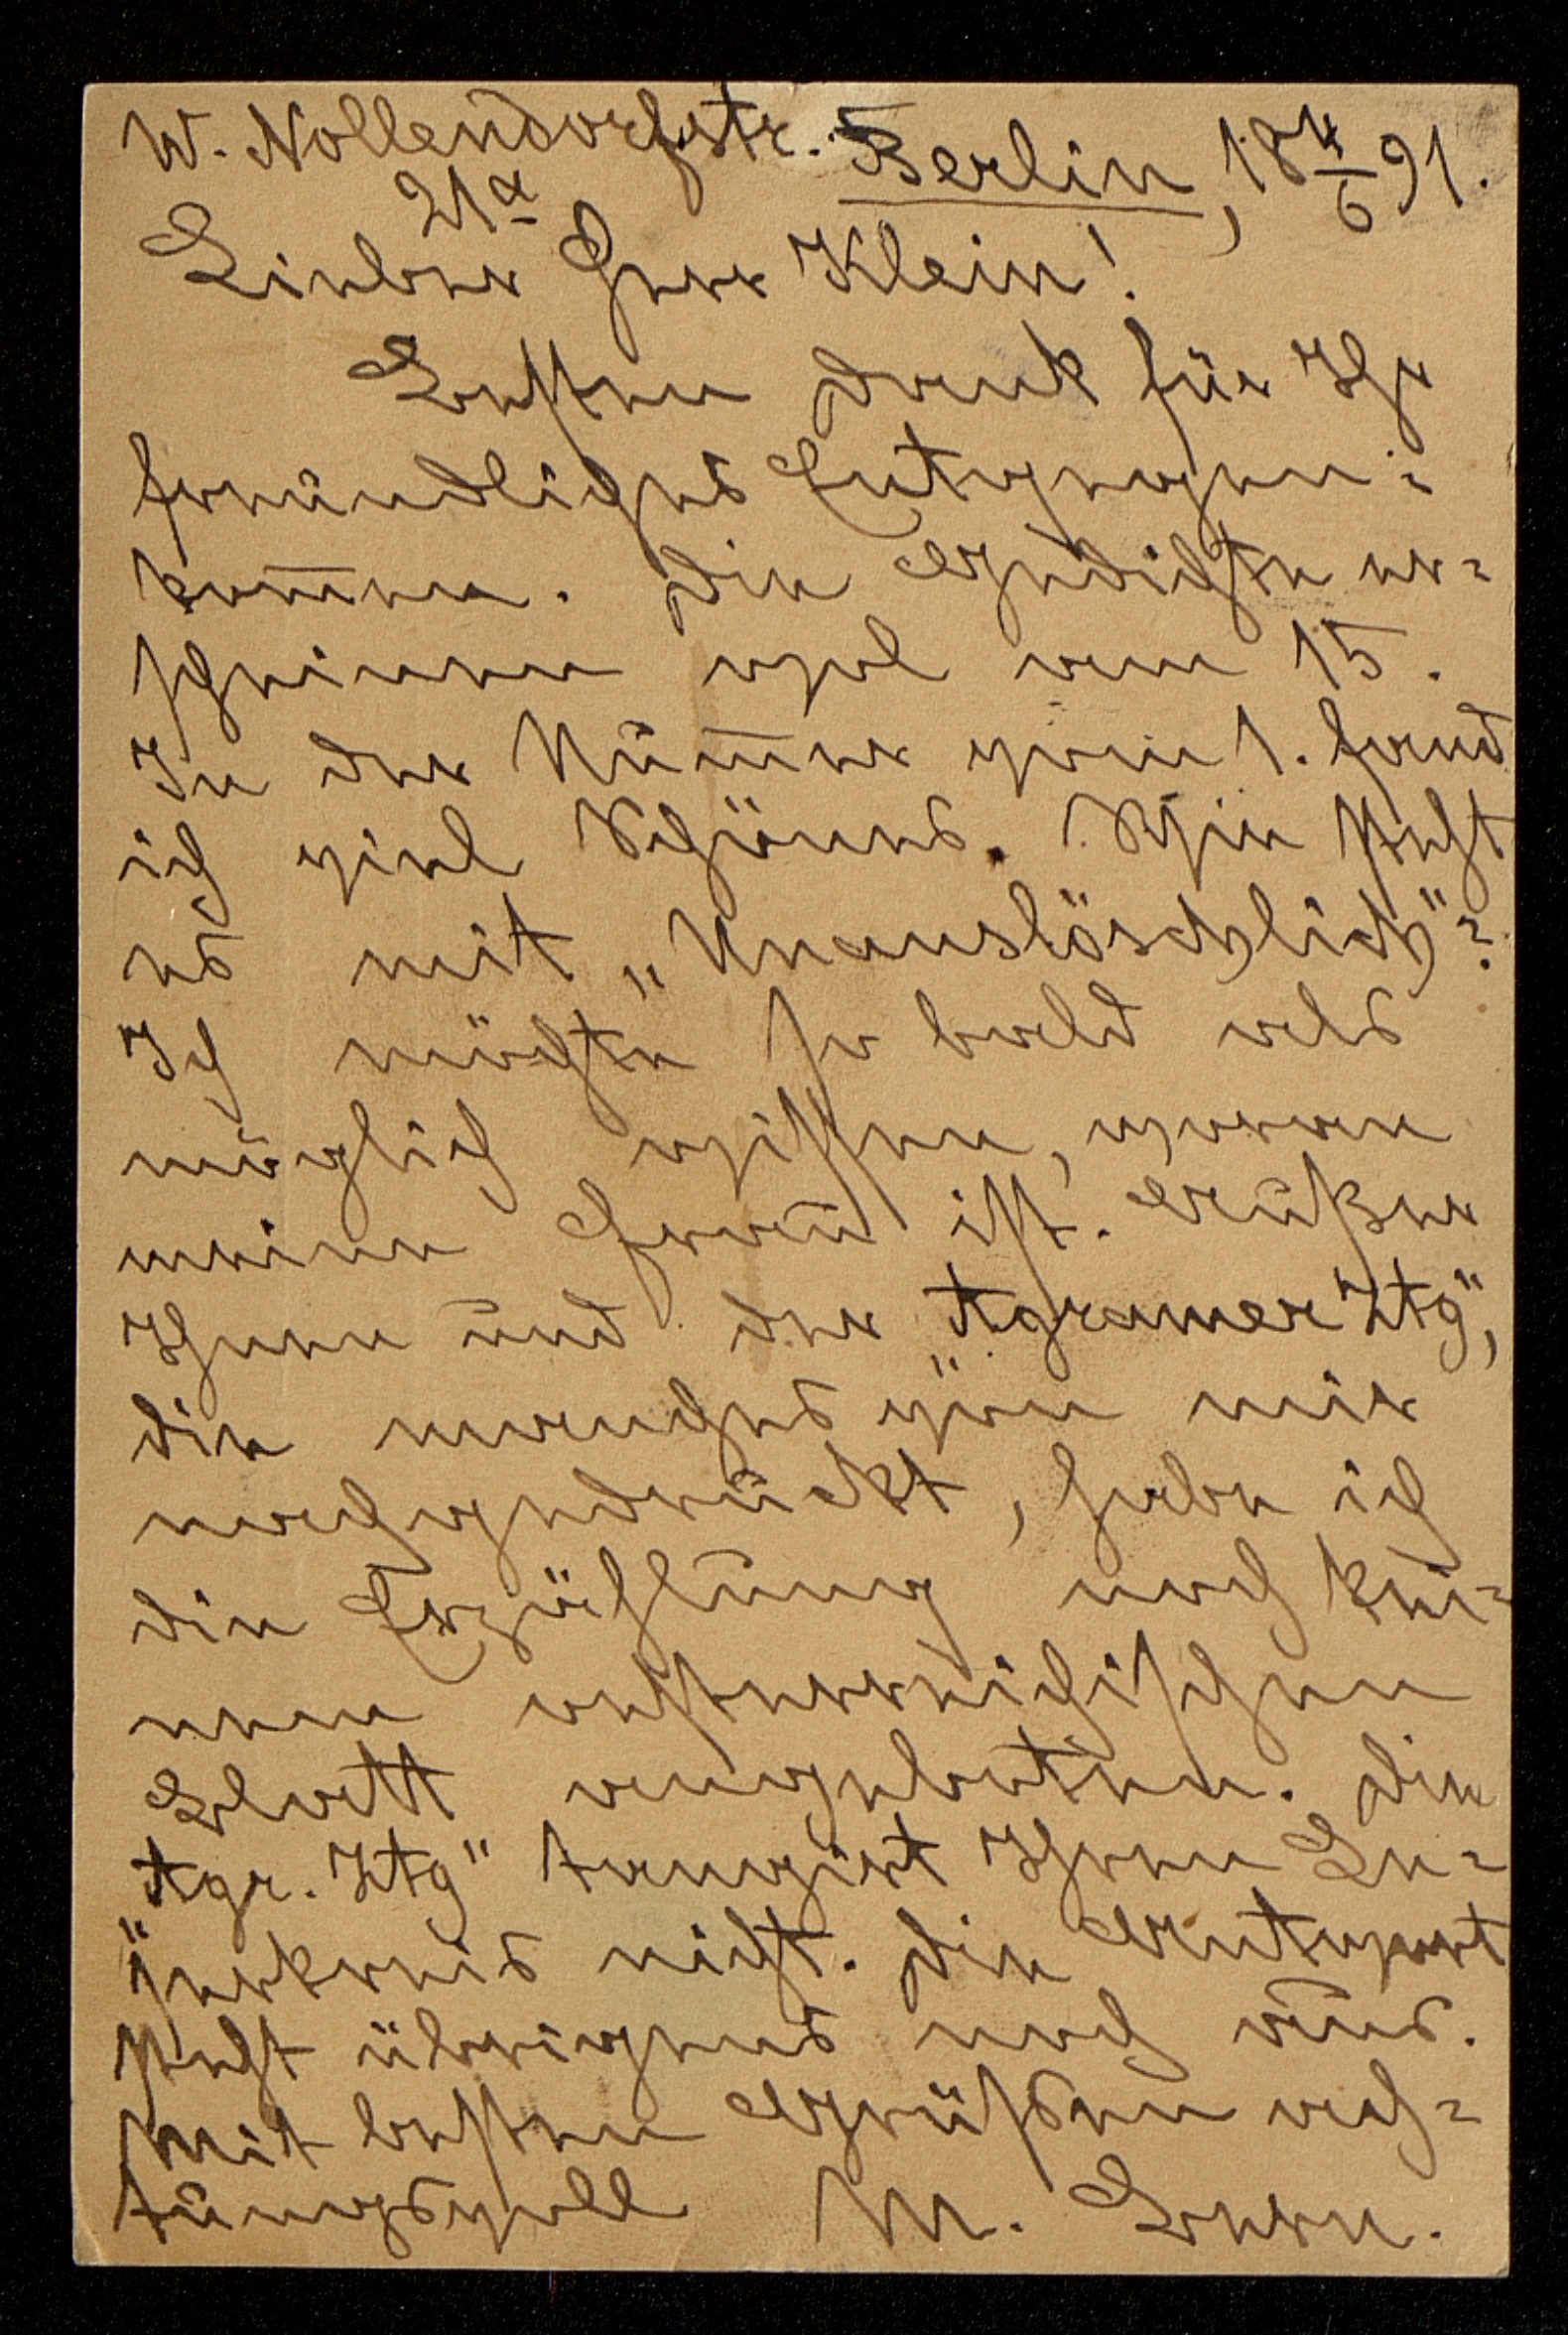 W. Nollendorfstr. Berlin, 18 4/6 91.
21a
Lieber Herr Klein!
Besten Dank für Ihr
freundliches Entgegen-
kom̅en. Die Gedichte er-
scheinen wol am 15.
In der Num̅er vom 1. fand
ich viel Schönes. Wie steht
es mit „Unauslöschlich“?
Ich möchte so bald als
möglich wissen, woran
meine Frau ist. Außer
Ihnen und der „Agramer Ztg“,
die manches von mir
nachgedruckt, habe ich
die Erzählung noch kei-
nem oesterreichischen
Blatt angeboten. Die
„Agr. Ztg“ tangirt Ihren Le-
serkreis nicht. Die Antwort
steht übrigens noch aus.
Mit besten Grüßen ach-
tungsvoll M. Bern.